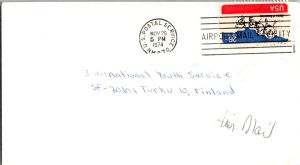 U.S. POSTAL SERVICE
NOV 25
5 PM
1974
USA
AIRPORT MAIL FACILITY
International Youth Service
SF-20101 Turku 10, Finland
Air Mail